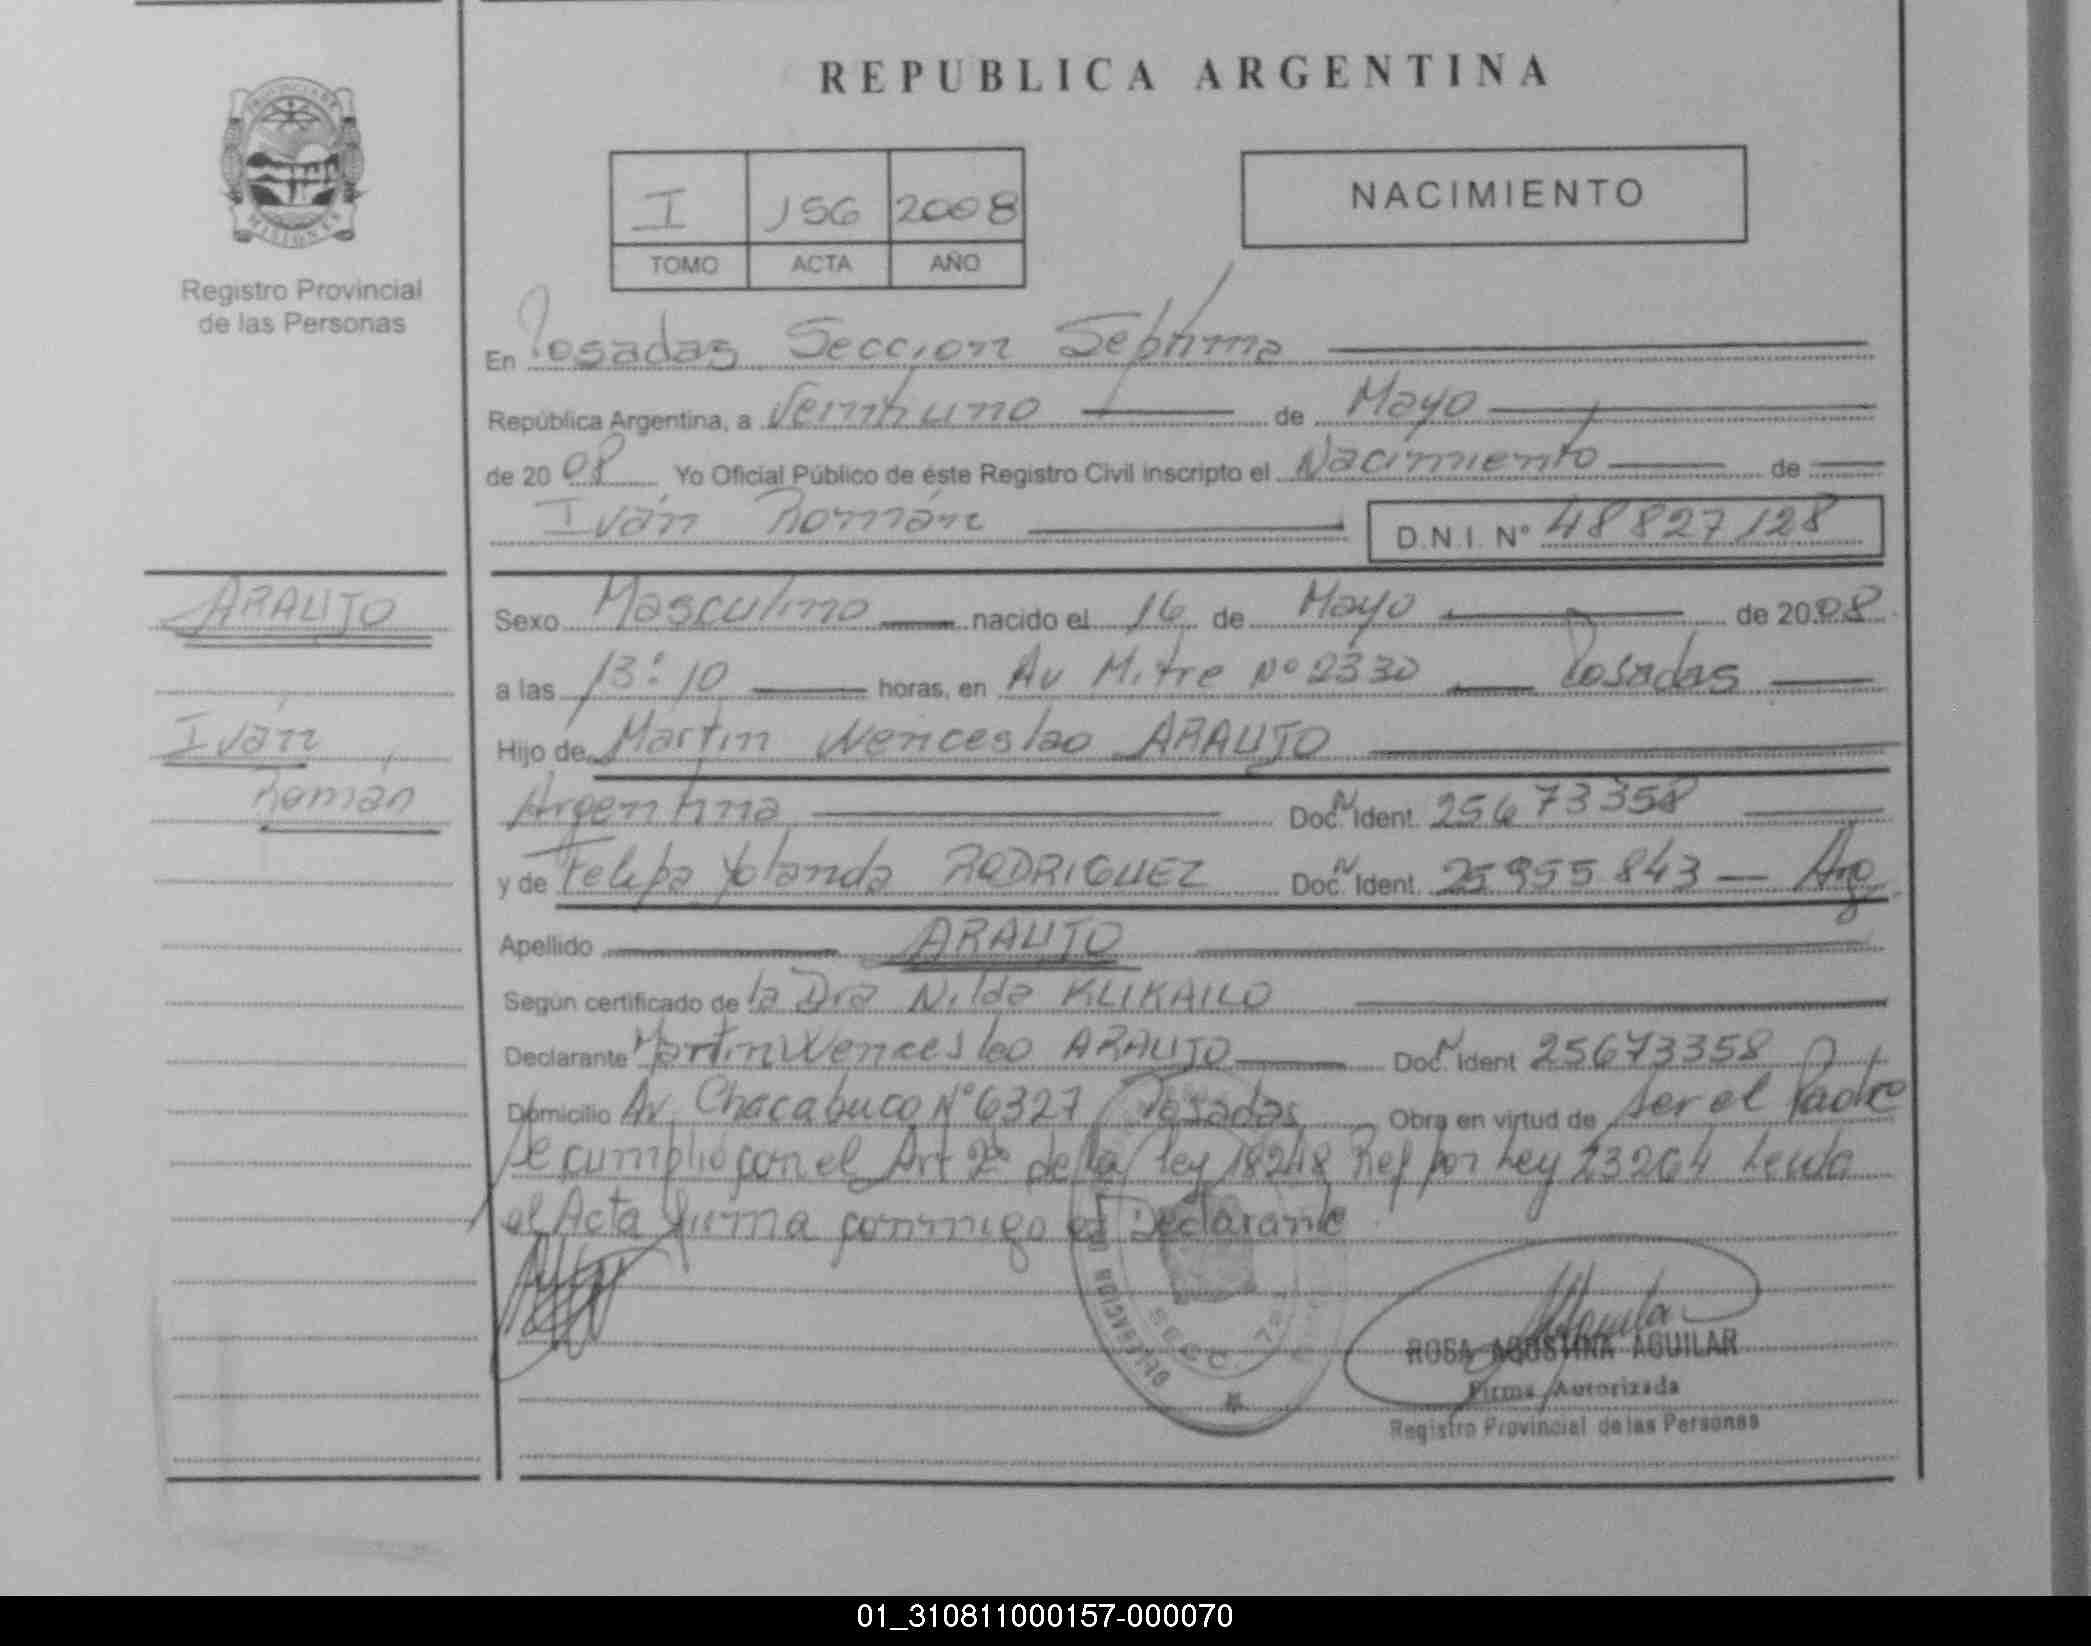 REPUBLICA ARGENTINA
PROVINCIA DE
MISIONES
Registro Provincial
de las Personas
I 156 2008
TOMO ACTA AÑO
NACIMIENTO
En Posadas Sección Séptima
República Argentina, a Veintiuno de Mayo
de 2008 Yo Oficial Público de éste Registro Civil inscripto el Nacimiento de
Iván Román D.N.I. Nº 48827128
ARAUJO
Iván
Román
Sexo Masculino nacido el 16 de Mayo de 2008
a las 13:10 horas, en Av Mitre Nº 2330 Posadas
Hijo de Martin Wenceslao ARAUJO
Argentina Doc. N Ident. 25673358
y de Felipa Yolanda RODRIGUEZ Doc. N Ident. 25955843 - Arg
Apellido ARAUJO
Según certificado de la Dra Nilda KLIKAILO
Declarante Martin Wenceslao ARAUJO Doc. N Ident 25673358
Domicilio Av. Chacabuco Nº 6327 Posadas Obra en virtud de ser el Padre
Se cumplió con el Art 2º de la ley 18248 Ref por Ley 23264 Leida
el Acta firma conmigo el Declarante
DELEGACION
SECC. 7ª
ROSA AGOSTINA AGUILAR
Firma Autorizada
Registro Provincial de las Personas
01_310811000157-000070